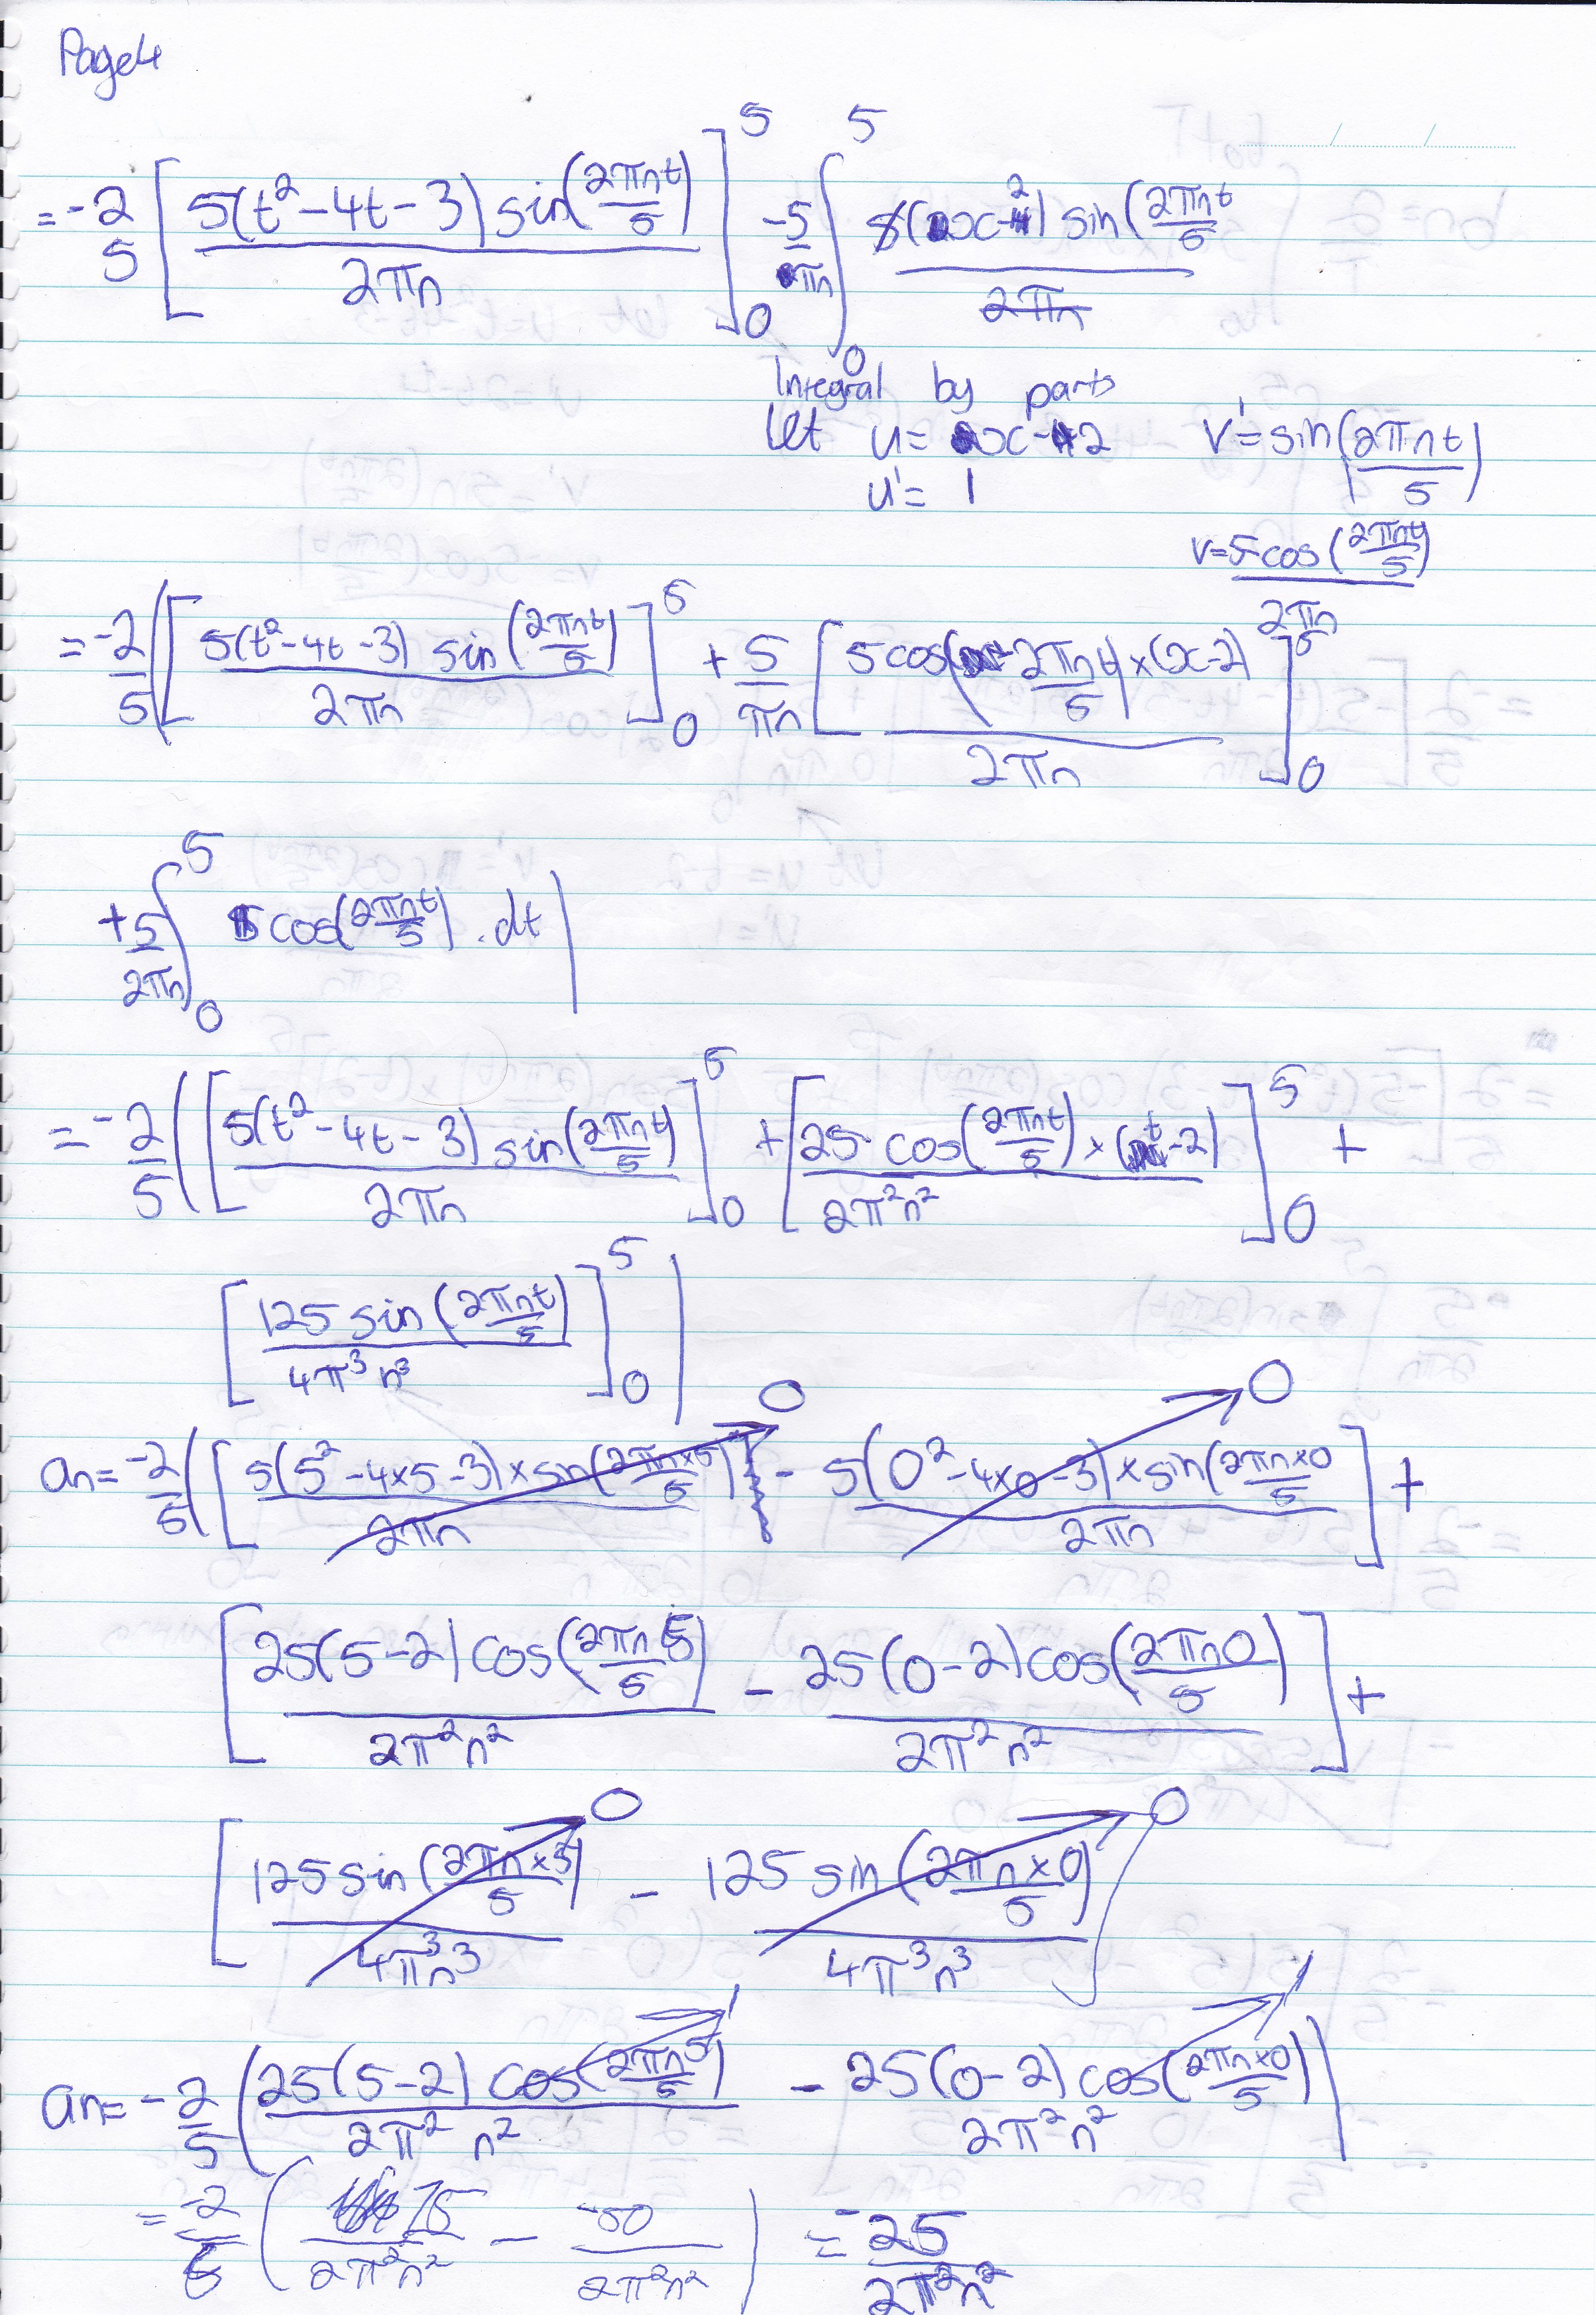 Page 4
= -2/5 [ 5(t² - 4t - 3) sin(2πnt/5) / 2πn ]₀⁵ - 5/πn ∫₀⁵ (x-2) sin(2πnt/5 / 2πn
Integral by parts
let u = x-2 v' = sin(2πnt/5)
u' = 1
v = 5cos(2πnt/5) / 2πn
= -2/5 ([ 5(t² - 4t - 3) sin(2πnt/5) / 2πn ]₀⁵ + 5/πn [ 5cos(2πnt/5) × (x-2) / 2πn ]₀⁵
+ 5/2πn ∫₀⁵ 5 cos(2πnt/5) . dt )
= -2/5 ([ 5(t² - 4t - 3) sin(2πnt/5) / 2πn ]₀⁵ + [ 25 cos(2πnt/5) × (t-2) / 2π²n² ]₀⁵ +
[ 125 sin(2πnt/5) / 4π³n³ ]₀⁵ )
0 0
an = -2/5 ([ 5(5² - 4×5 - 3) × sin(2πn×5/5) / 2πn - 5(0² - 4×0 - 3) × sin(2πn×0/5 / 2πn ] +
[ 25(5-2) cos(2πn5/5) / 2π²n² - 25(0-2) cos(2πn0/5) / 2π²n² ] +
0 0
[ 125 sin(2πn×5/5) / 4π³n³ - 125 sin(2πn×0/5) / 4π³n³ ]
1 1
an = -2/5 ( 25(5-2) cos(2πn5/5) / 2π²n² - 25(0-2) cos(2πn×0/5) / 2π²n² )
= -2/5 ( 75 / 2π²n² - -50 / 2π²n² ) = -25 / 2π²n²